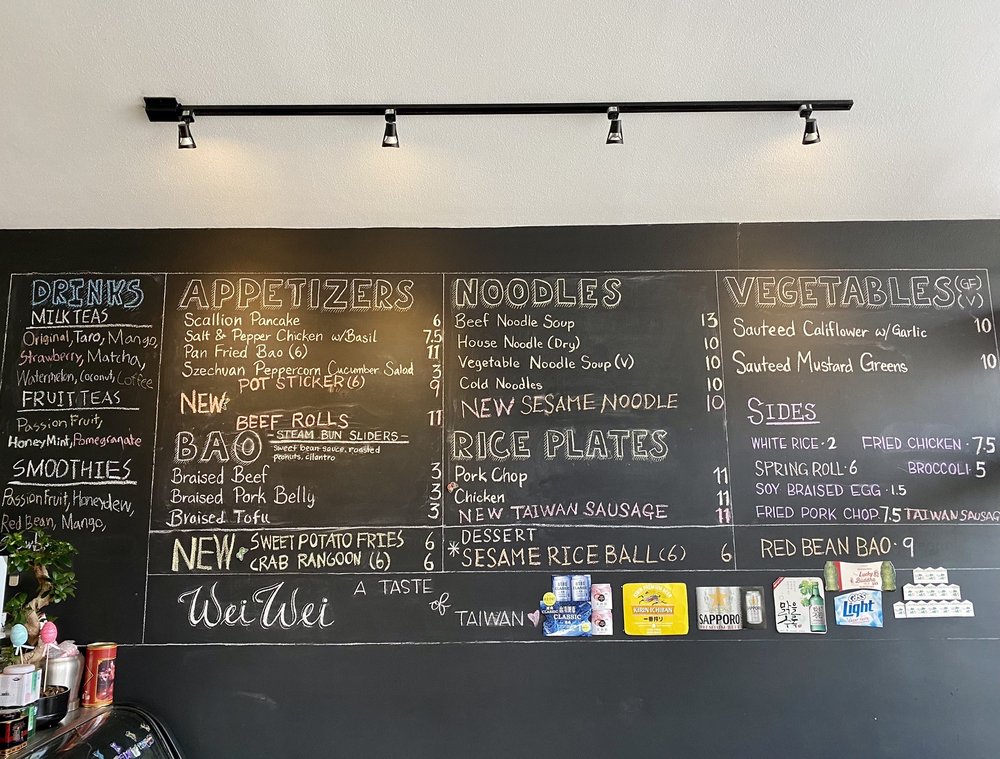 DRINKS
MILK TEAS
Original, Taro, Mango,
Strawberry, Matcha,
Watermelon, Coconut, Coffee
FRUIT TEAS
Passion Fruit,
Honey Mint, Pomegranate
SMOOTHIES
Passion Fruit, Honeydew,
Red Bean, Mango,
APPETIZERS
Scallion Pancake 6
Salt & Pepper Chicken w/Basil 7.5
Pan Fried Bao (6) 11
Szechuan Peppercorn Cucumber Salad 3
POT STICKER (6) 9
NEW
BEEF ROLLS 11
BAO -STEAM BUN SLIDERS-
sweet bean sauce, roasted
peanuts, cilantro
Braised Beef 3
Braised Pork Belly 3
Braised Tofu 3
NEW SWEET POTATO FRIES 6
CRAB RANGOON (6) 6
NOODLES
Beef Noodle Soup 13
House Noodle (Dry) 10
Vegetable Noodle Soup (V) 10
Cold Noodles 10
NEW SESAME NOODLE 10
RICE PLATES
Pork Chop 11
Chicken 11
NEW TAIWAN SAUSAGE 11
DESSERT
*SESAME RICE BALL (6) 6
VEGETABLES (GF)
(V)
Sauteed Califlower w/Garlic 10
Sauteed Mustard Greens 10
SIDES
WHITE RICE · 2 FRIED CHICKEN · 7.5
SPRING ROLL · 6 BROCCOLI · 5
SOY BRAISED EGG · 1.5
FRIED PORK CHOP 7.5 TAIWAN SAUSAG
RED BEAN BAO · 9
Wei Wei A TASTE
of
TAIWAN
CLASSIC
CLASSIC
KIRIN ICHIBAN
一番搾り
SAPPORO
PREMIUM BEER
Lucky
Buddha
Light